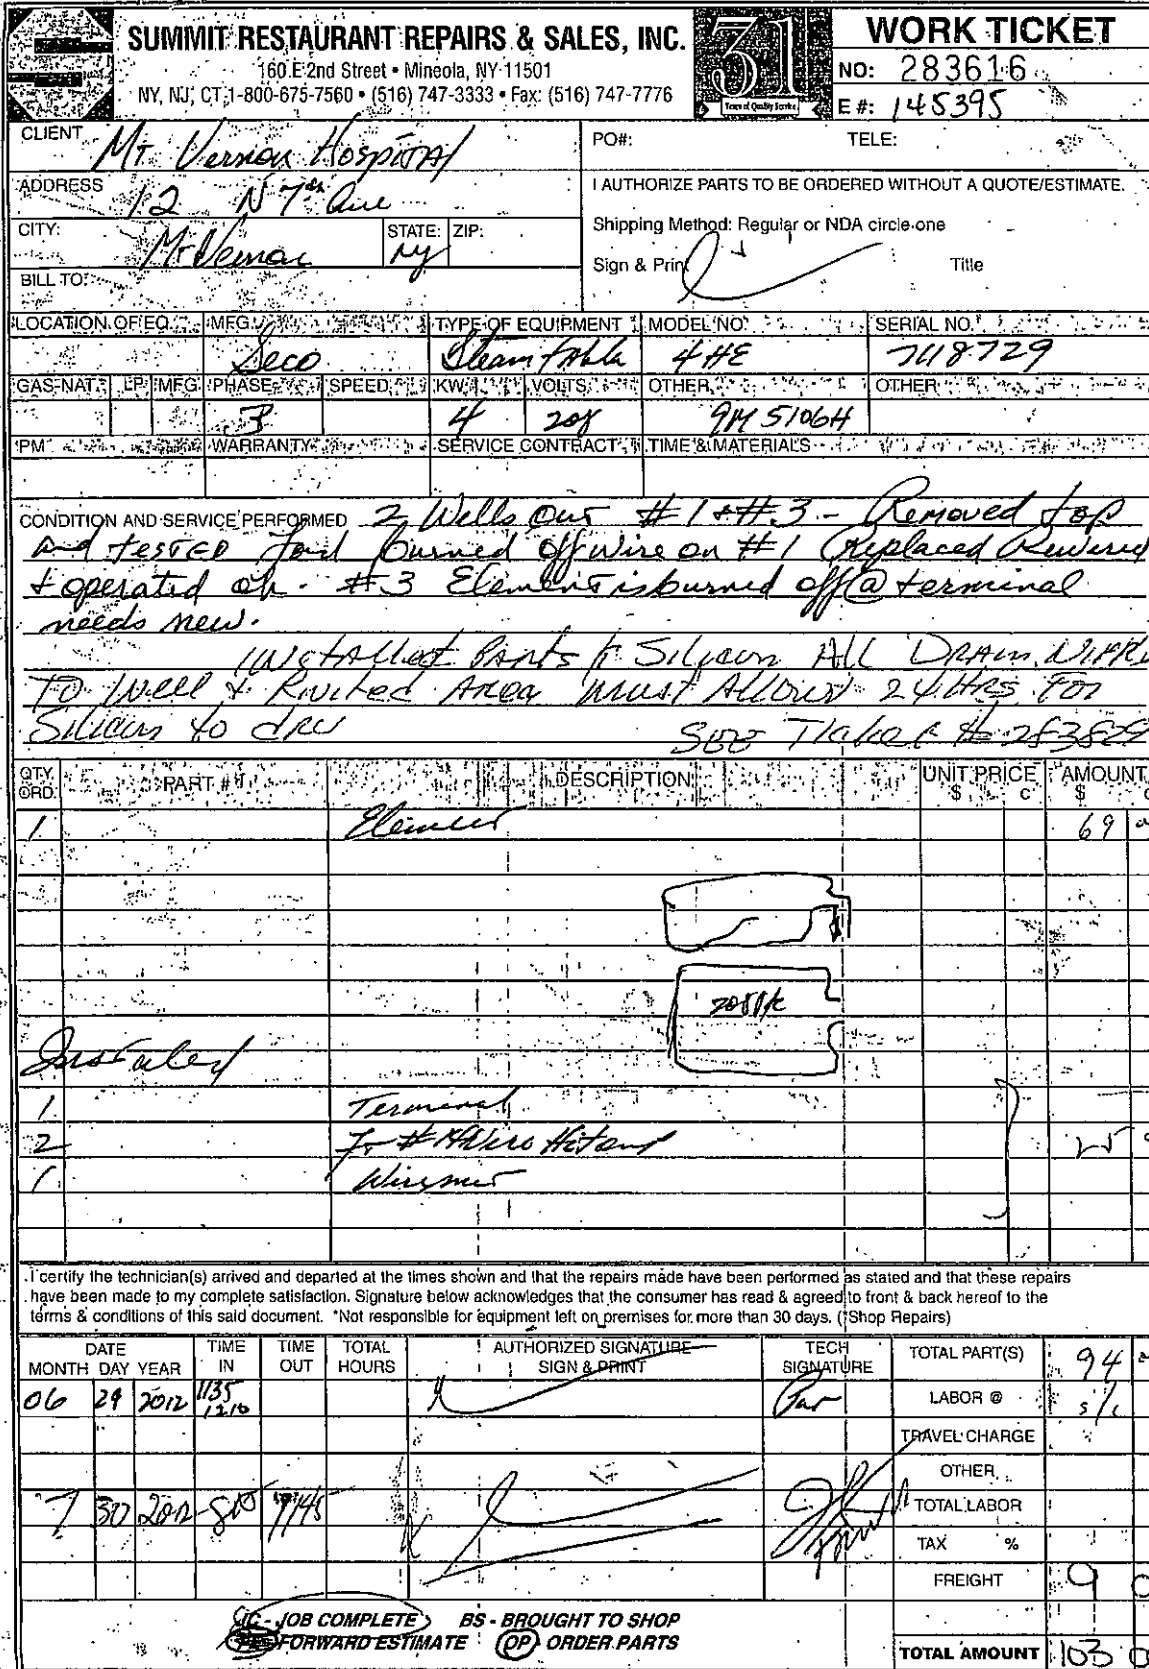 SUMMIT RESTAURANT REPAIRS & SALES, INC.
160 E 2nd Street • Mineola, NY 11501
NY, NJ, CT, 1-800-675-7560 • (516) 747-3333 • Fax: (516) 747-7776
31
Years of Quality Service
WORK TICKET
NO: 283616
E #: 145395
CLIENT Mt Vernon Hospital
PO#: TELE:
ADDRESS 12 N 7th Ave
I AUTHORIZE PARTS TO BE ORDERED WITHOUT A QUOTE/ESTIMATE.
CITY: Mt Vernon STATE: NY ZIP:
Shipping Method: Regular or NDA circle one
Sign & Print Title
BILL TO:
LOCATION OF EQ. MFG. TYPE OF EQUIPMENT MODEL NO. SERIAL NO.
Seco Steam table 4 HE 7118729
GAS-NAT. LP MFG PHASE SPEED KW VOLTS OTHER OTHER
3 4 208 9M 5106H
PM WARRANTY SERVICE CONTRACT TIME & MATERIALS
CONDITION AND SERVICE PERFORMED 2 Wells Out #1 + #3 - Removed top
and tested burned off wire on #1 Replaced Rewired
+ operated ok. #3 Element is burned off @ terminal
needs new.
Installed Parts Silicon All Drain
To Well & Area Must Allow 24 HRS For
Silicon to dry See Ticket #
QTY. ORD. PART # DESCRIPTION UNIT PRICE $ c AMOUNT $ c
1 Element 69
Installed
1 Terminal
2 Hi temp
1 Wirenut
I certify the technician(s) arrived and departed at the times shown and that the repairs made have been performed as stated and that these repairs
have been made to my complete satisfaction. Signature below acknowledges that the consumer has read & agreed to front & back hereof to the
terms & conditions of this said document. *Not responsible for equipment left on premises for more than 30 days. (*Shop Repairs)
DATE MONTH DAY YEAR TIME IN TIME OUT TOTAL HOURS AUTHORIZED SIGNATURE SIGN & PRINT TECH SIGNATURE
TOTAL PART(S) 94
06 29 2012 1135
1210
LABOR @ s/c
TRAVEL CHARGE
OTHER
7 30 2012
TOTAL LABOR
TAX %
FREIGHT 9
JC - JOB COMPLETE BS - BROUGHT TO SHOP
FORWARD ESTIMATE OP ORDER PARTS
TOTAL AMOUNT 103